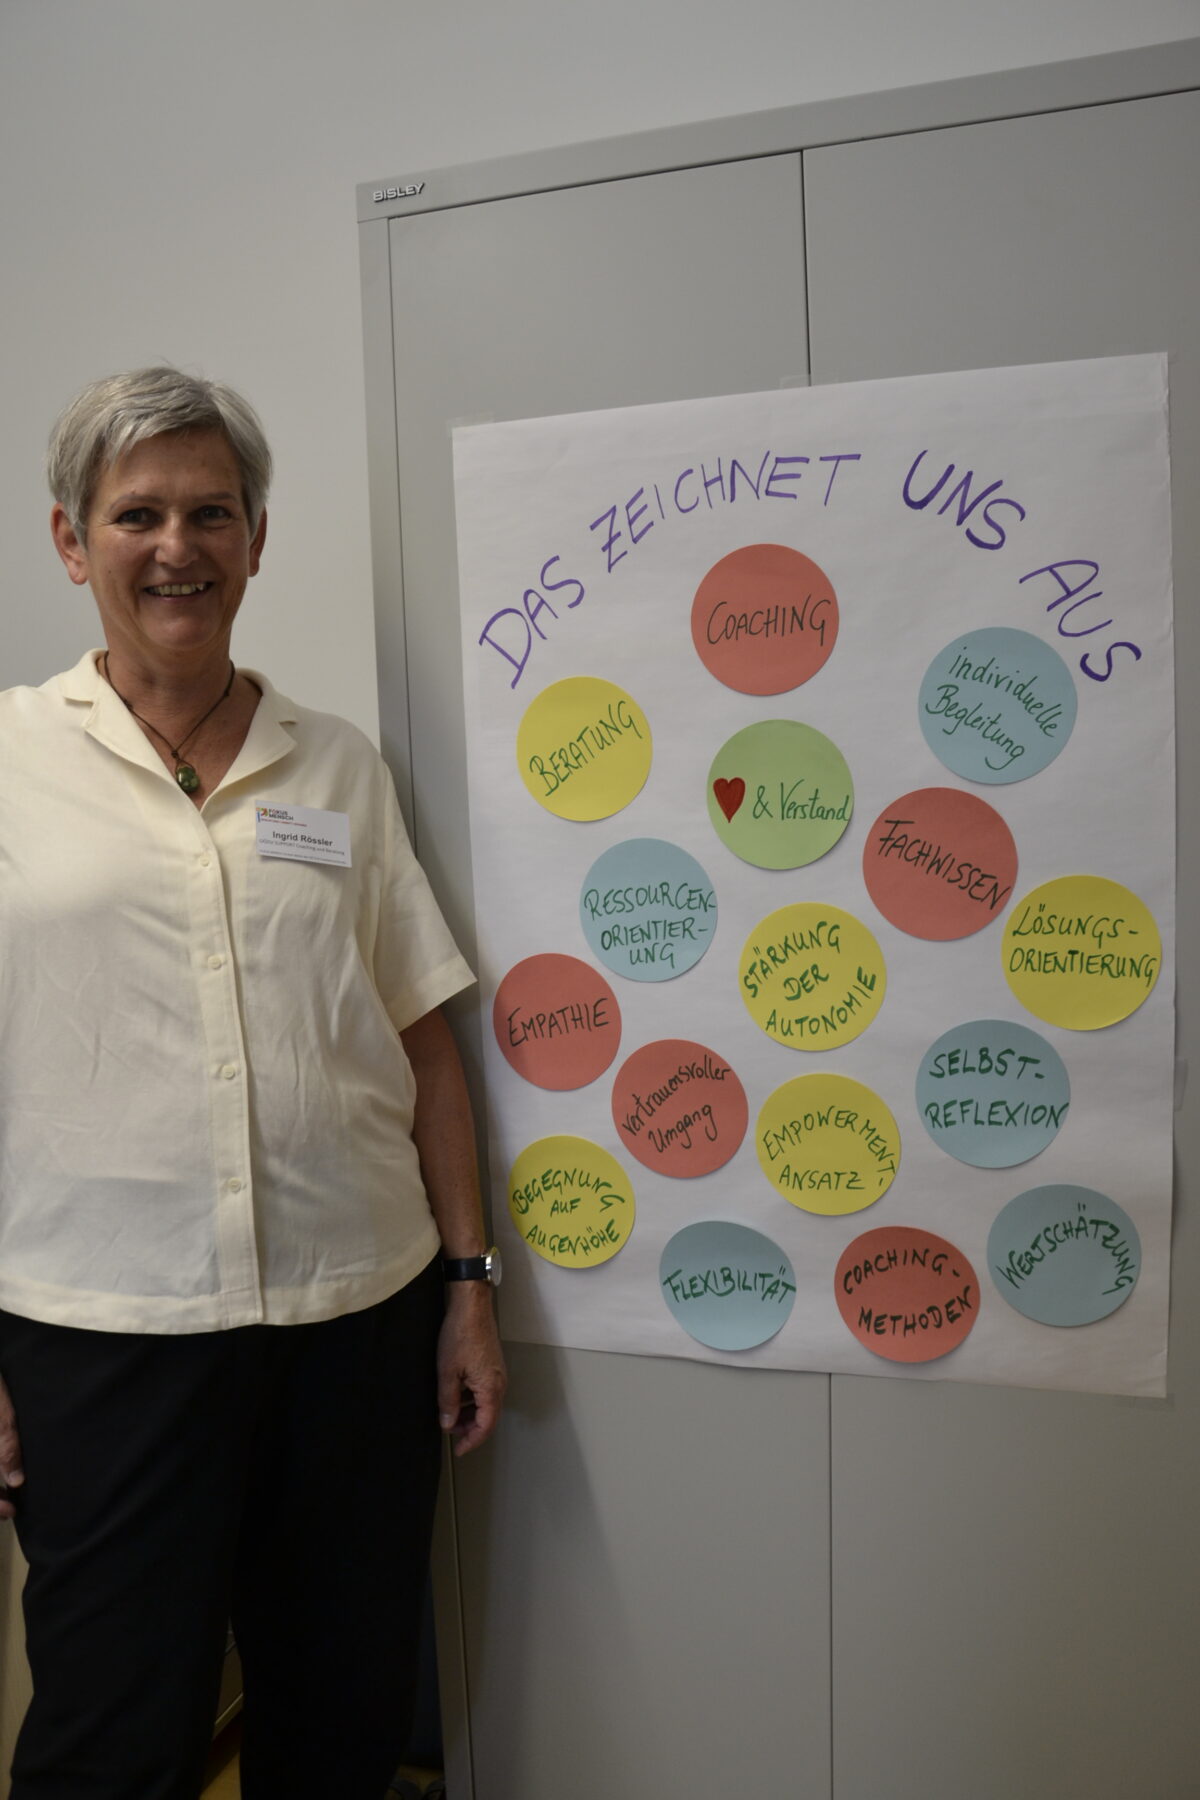 BISLEY
DAS ZEICHNET UNS AUS
COACHING
individuelle
Begleitung
BERATUNG
& Verstand
FACHWISSEN
RESSOURCEN-
ORIENTIER-
UNG
LÖSUNGS-
ORIENTIERUNG
STÄRKUNG
DER
AUTONOMIE
EMPATHIE
SELBST-
REFLEXION
vertrauensvoller
Umgang
EMPOWERMENT-
ANSATZ
BEGEGNUNG
AUF
AUGENHÖHE
FLEXIBILITÄT
COACHING-
METHODEN
WERTSCHÄTZUNG
FOKUS
MENSCH
Ingrid Rössler
SUPPORT Coaching und Beratung